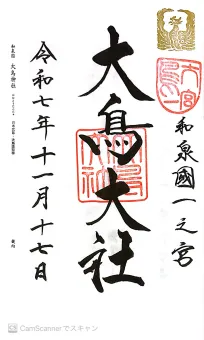 和泉國一之宮
大鳥大社
令和七年十一月十七日
CamScannerでスキャン